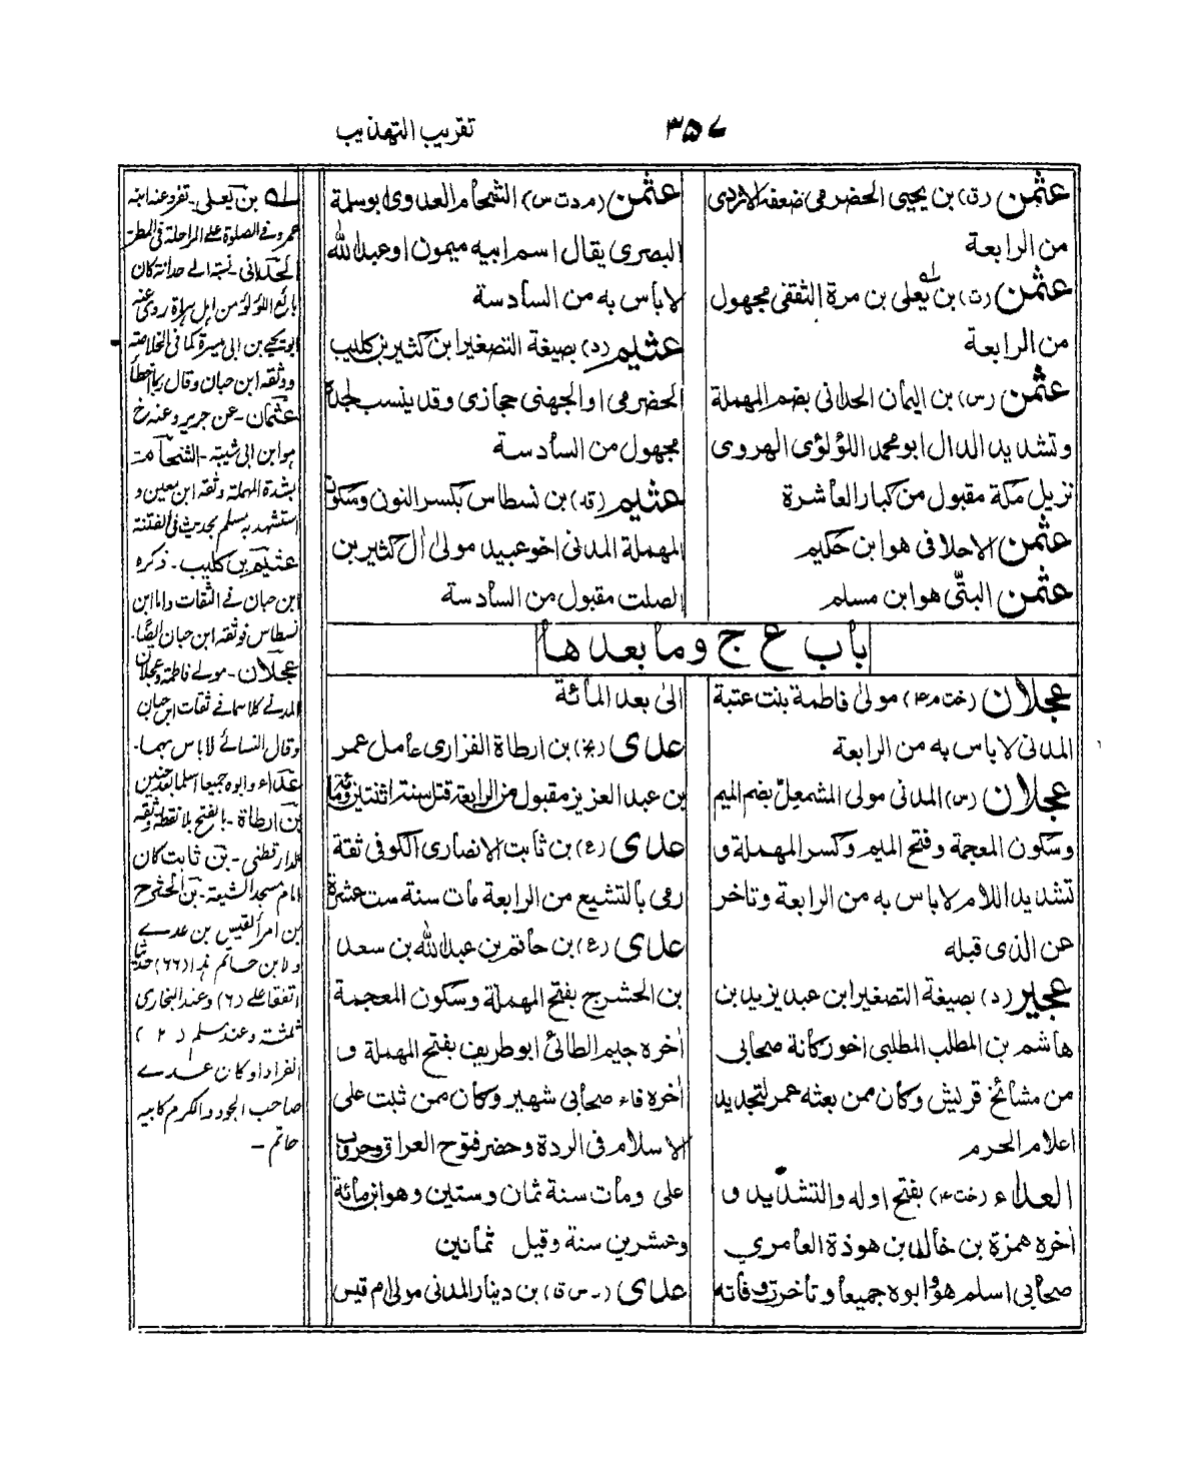 تقريب التهذيب
٣٥٧
عثمن (ق) بن يحيى الحضرمى ضعفه الازدى
من الرابعة
عثمن (ت) بن يعلى بن مرة الثقفى مجهول
من الرابعة
عثمن (س) بن اليمان الحدانى بضم المهملة
وتشديد الدال ابو محمد اللؤلؤى الهروى
نزيل مكة مقبول من كبار العاشرة
عثمن الاحلافى هو ابن حكيم
عثمن البتّى هو ابن مسلم
عثمن (م د ت س) الشحام العدوى ابوسلمة
البصرى يقال اسم ابيه ميمون او عبد الله
لا باس به من السادسة
عثيم (د) بصيغة التصغير ابن كثير بن كليب
الحضرمى او الجهنى حجازى وقد ينسب لجده
مجهول من السادسة
عثيم (قد) بن نسطاس بكسر النون وسكون
المهملة المدنى اخو عبيد مولى اٰل كثير بن
الصلت مقبول من السادسة
باب ع ج وما بعدها
عجلان (خت م ۴) مولى فاطمة بنت عتبة
المدنى لا باس به من الرابعة
عجلان (س) المدنى مولى المشمعلّ بضم الميم
وسكون المعجمة وفتح الميم وكسر المهملة و
تشديد اللام لا باس به من الرابعة وتاخر
عن الذى قبله
عجير (د) بصيغة التصغير ابن عبد يزيد بن
هاشم بن المطلب المطلبى اخو ركانة صحابى
من مشائخ قريش وكان ممن بعثه عمر لتجديد
اعلام الحرم
العداء (خت ۴) بفتح اوله والتشديد و
اٰخره همزة بن خالد بن هوذة العامري
صحابى اسلم هو وابوه جميعا وتأخرت وفاته
الى بعد المائة
عدى (بخ) بن ارطاة الفزارى عامل عمر
بن عبد العزيز مقبول من الرابعة قتل سنة اثنتين ومائة
عدى (ع) بن ثابت الانصارى الكوفى ثقة
رمى بالتشيع من الرابعة مات سنة ست عشرة
عدى (ع) بن حاتم بن عبد الله بن سعد
بن الحشرج بفتح المهملة وسكون المعجمة
اٰخره جيم الطائى ابو طريف بفتح المهملة و
اٰخره فاء صحابى شهير وكان ممن ثبت على
الاسلام فى الردة وحضر فتوح العراق وحروب
على ومات سنة ثمان وستين وهو ابن مائة
وعشرين سنة وقيل ثمانين
عدى (س ق) بن دينار المدنى مولى ام قيس
له بن يعلى۔ تفرد عنه ابنه
عمرو فى الصلوة على الراحلة فى المطر
الحدانى نسبة الى حدانة كان
بائع اللؤلؤ من اهل هراة روى عنه
ابو يحيى بن ابى ميسرة كما فى الخلاصة
ووثقه ابن حبان وقال ربما اخطأ
عثمان۔ عن جرير وعنه خ
هو ابن ابى شيبة۔ الشحام
بشدة المهملة وثقه ابن معين و
استشهد به مسلم بحديث فى الفتنة
عثيم بن كليب۔ ذكره
ابن حبان فى الثقات واما ابن
نسطاس فوثقه ابن حبان ايضًا۔
عجلان۔ مولى فاطمة وعجلان
المدنى كلاهما فى ثقات ابن حبان
وقال النسائى لا باس بهما۔
عداء وابوه جميعا اسلما بعد حنين
بن ارطاة۔ بالفتح بلا نقطة وثقه
الدارقطنى۔ بن ثابت كان
امام مسجد الشيعة۔ بن الحشرج
بن امرأ القيس بن عدى
ولابن حاتم (٦٦) حديثا
اتفقا على (٦) وعند البخارى
ثلثة وعند مسلم (٢)
انفرادا وكان عدى
صاحب الجود والكرم كابيه
حاتم۔